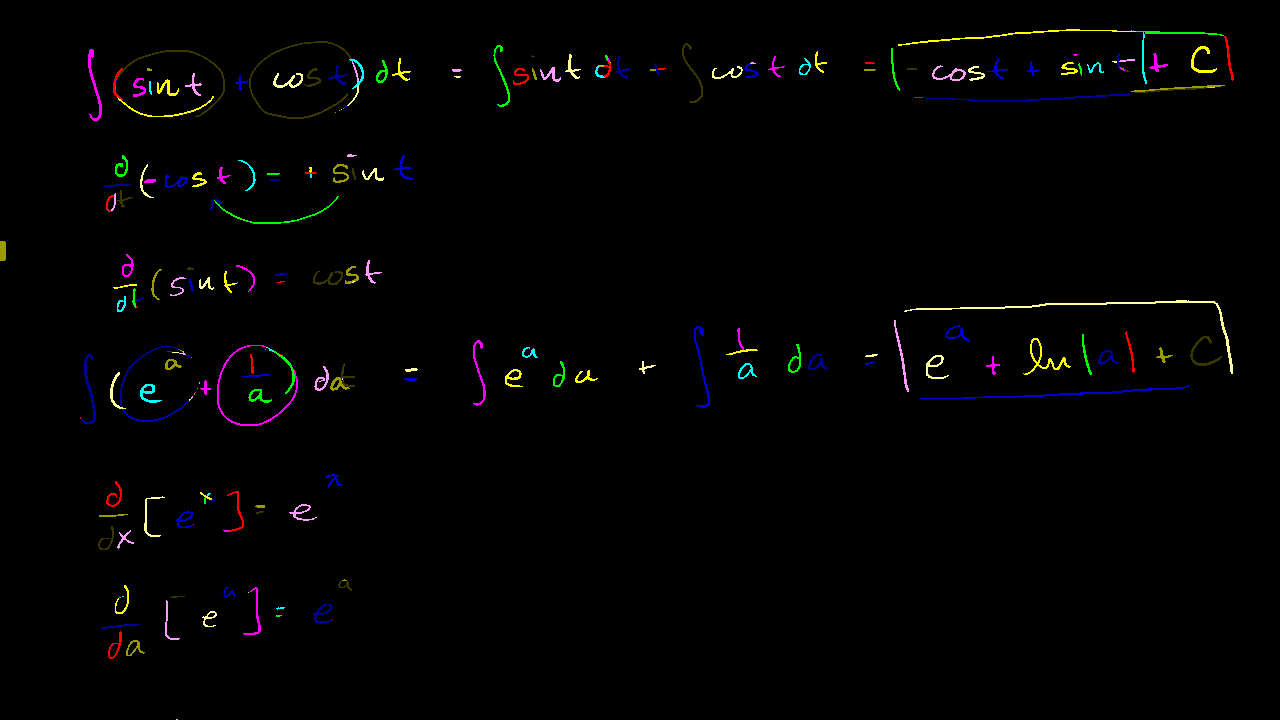 ∫ (sin t + cos t) dt = ∫ sin t dt + ∫ cos t dt = - cos t + sin t + C
d/dt (- cos t) = + sin t
d/dt (sin t) = cos t
∫ (e^a + 1/a) da = ∫ e^a da + ∫ 1/a da = e^a + ln|a| + C
d/dx [e^x] = e^x
d/da [e^a] = e^a